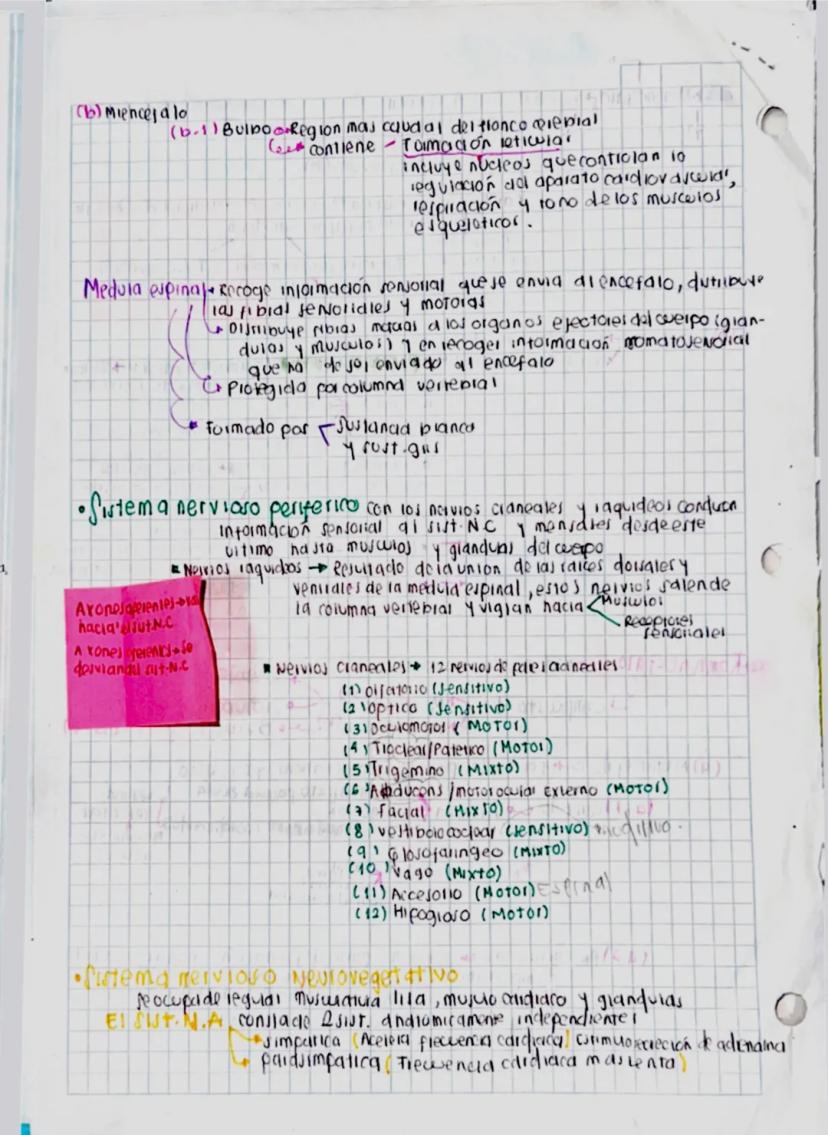 (b) Miencefalo
(b.1) Bulbo → Region mas caudal del tronco cerebral
contiene - Formación reticular
incluye nucleos que controlan la
regulación del aparato cardiovascular,
respiración y tono de los musculos
esqueleticos.
Medula espinal → Recoge información sensorial que se envia al encefalo, distribuye
las fibras sensoriales y motoras
Distribuye fibras motoras a los organos efectores del cuerpo (glan-
dulas y musculos) y en recoger información somatosensorial
que ha de ser enviado al encefalo
Protegida por columna vertebral
Formado por Sustancia blanca
y sust. gris
• Sistema nervioso periferico con los nervios craneales y raquideos conducen
información sensorial al sist. N.C y mensajes desde este
ultimo hasta musculos y glandulas del cuerpo
Nervios raquideos → Resultado de la union de las raices dorsales y
ventrales de la medula espinal, estos nervios salen de
la columna vertebral y viajan hacia Musculos
Receptores
sensoriales
Axones aferentes → va
hacia el sist. N.C
Axones eferentes → se
desvian del sist. N.C
Nervios craneales → 12 nervios de pares craneales
(1) Olfatorio (Sensitivo)
(2) Optico (Sensitivo)
(3) Oculomotor (MOTOR)
(4) Troclear/Patetico (MOTOR)
(5) Trigemino (MIXTO)
(6) Abducens /motor ocular externo (MOTOR)
(7) Facial (MIXTO)
(8) Vestibulo coclear (Sensitivo) Auditivo.
(9) Glosofaringeo (MIXTO)
(10) Vago (Mixto)
(11) Accesorio (MOTOR) Espinal
(12) Hipogloso (MOTOR)
• Sistema nervioso Neurovegetativo
Se ocupa de regular musculatura lisa, musculo cardiaco y glandulas
El Sist. N.A consta de 2 sist. anatomicamente independientes
simpatica (Acelera frecuencia cardiaca) estimula secreción de adrenalina
parasimpatica (Frecuencia cardiaca mas lenta)